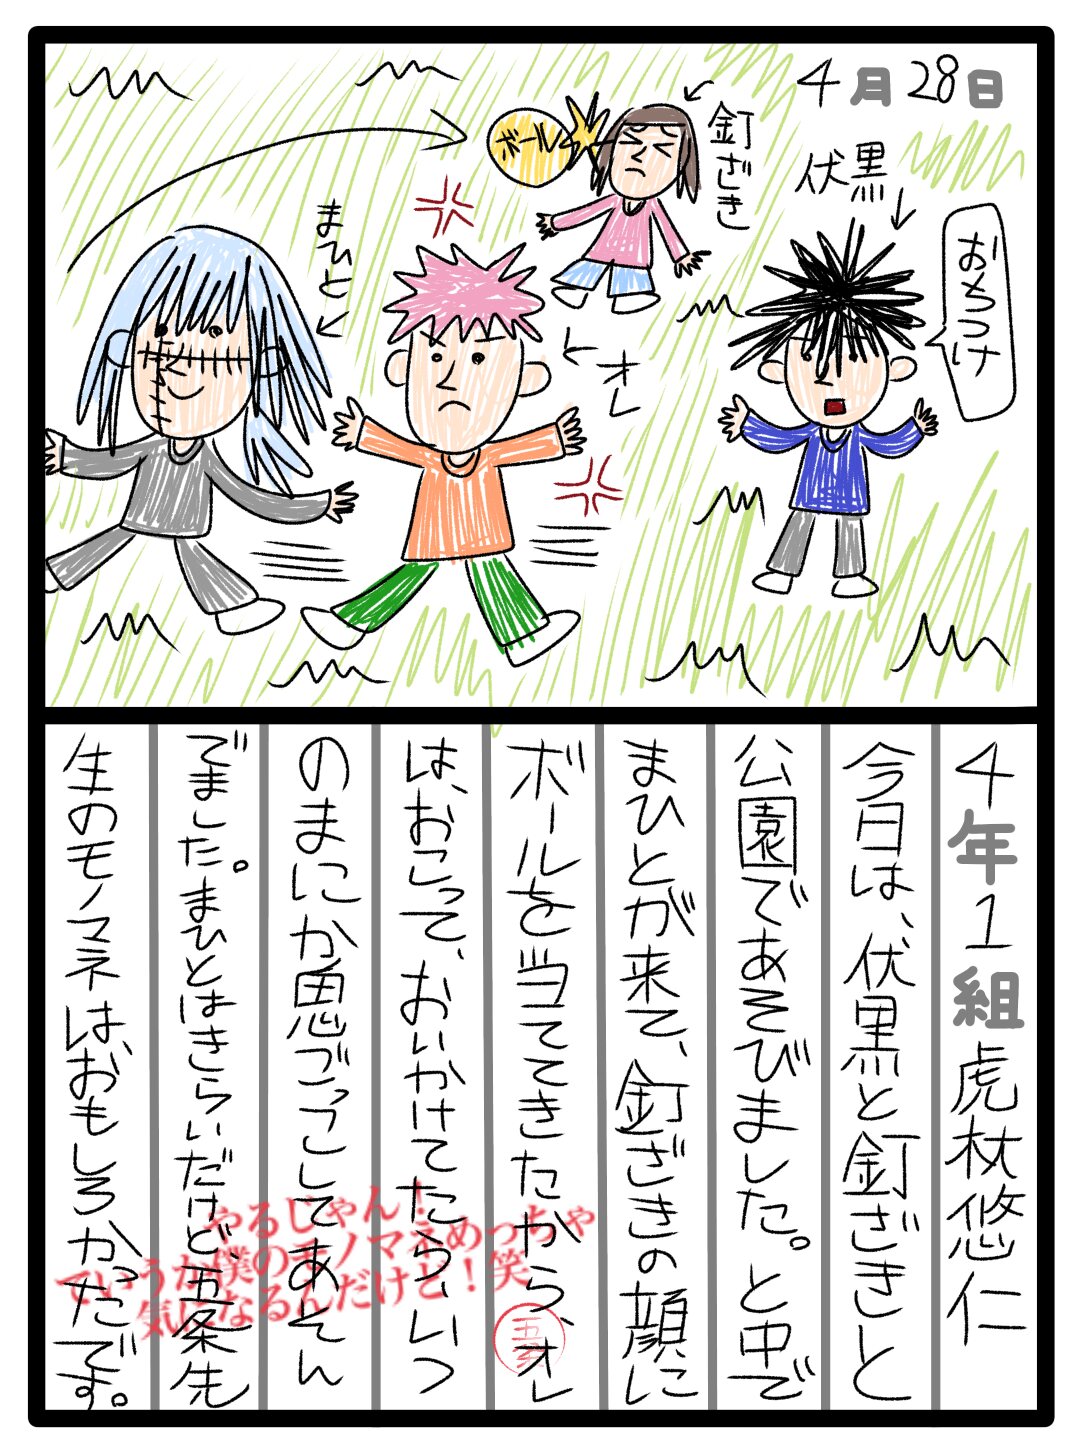 4月28日
伏黒
おちつけ
釘ざき
ボール
まひと
オレ
4年1組 虎杖悠仁
今日は、伏黒と釘ざきと
公園であそびました。と中で
まひとが来て、釘ざきの顔に
ボールを当ててきたから、オレ
は、おこって、おいかけてたらいつ
のまにか鬼ごっこしてあそん
でました。まひとはきらいだけど、五条先
生のモノマネはおもしろかったです。
やるじゃん！
ていうか僕のモノマネめっちゃ
気になるんだけど！笑
五条